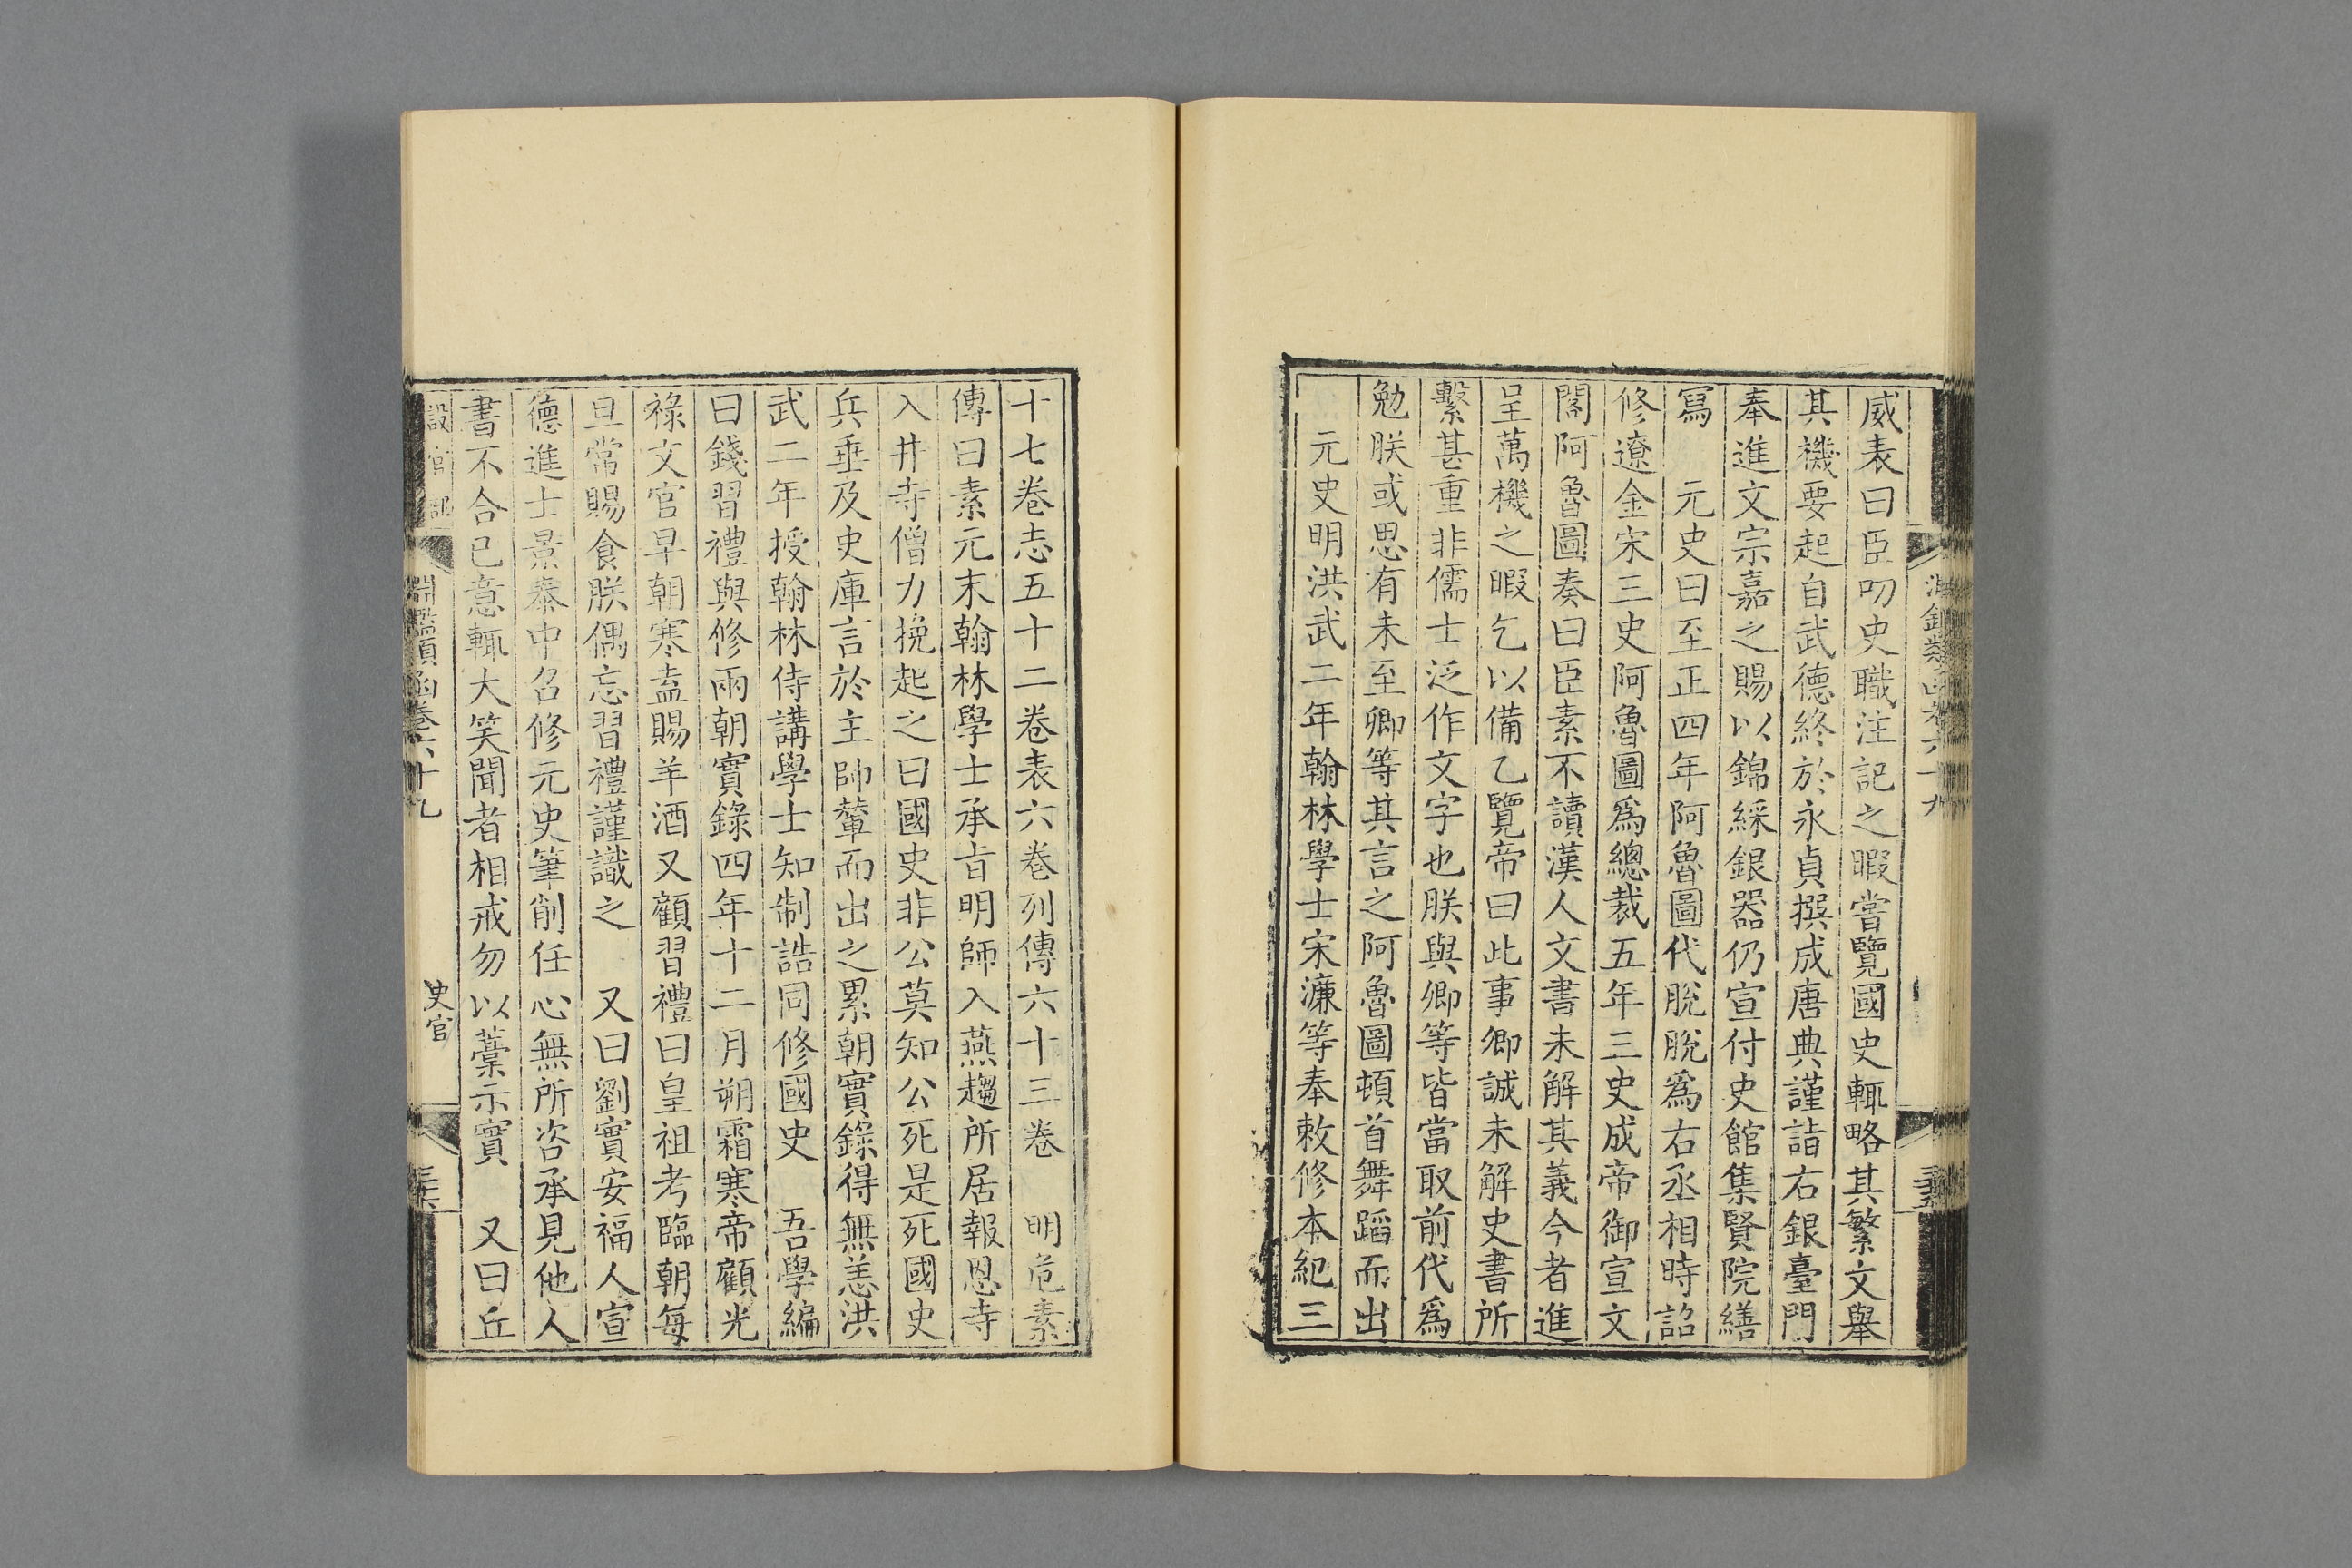 威表曰臣叨史職注記之暇嘗覽國史輒略其繁文舉
其機要起自武德終於永貞撰成唐典謹詣右銀臺門
奉進文宗嘉之賜以錦綵銀器仍宣付史館集賢院繕
寫　元史曰至正四年阿魯圖代脫脫爲右丞相時詔
修遼金宋三史阿魯圖爲總裁五年三史成帝御宣文
閣阿魯圖奏曰臣素不讀漢人文書未解其義今者進
呈萬機之暇乞以備乙覽帝曰此事卿誠未解史書所
繫甚重非儒士泛作文字也朕與卿等皆當取前代爲
勉朕或思有未至卿等其言之阿魯圖頓首舞蹈而出
元史明洪武二年翰林學士宋濂等奉敕修本紀三
十七卷志五十二卷表六卷列傳六十三卷　明危素
傳曰素元末翰林學士承旨明師入燕趨所居報恩寺
入井寺僧力挽起之曰國史非公莫知公死是死國史
兵垂及史庫言於主帥輦而出之累朝實錄得無恙洪
武二年授翰林侍講學士知制誥同修國史　吾學編
曰錢習禮與修兩朝實錄四年十二月朔霜寒帝顧光
祿文官早朝寒盍賜羊酒又顧習禮曰皇祖考臨朝每
旦常賜食朕偶忘習禮謹識之　又曰劉實安福人宣
德進士景泰中召修元史筆削任心無所咨承見他人
書不合已意輒大笑聞者相戒勿以藁示實　又曰丘
設官部
淵鑑類函卷六十九
史官